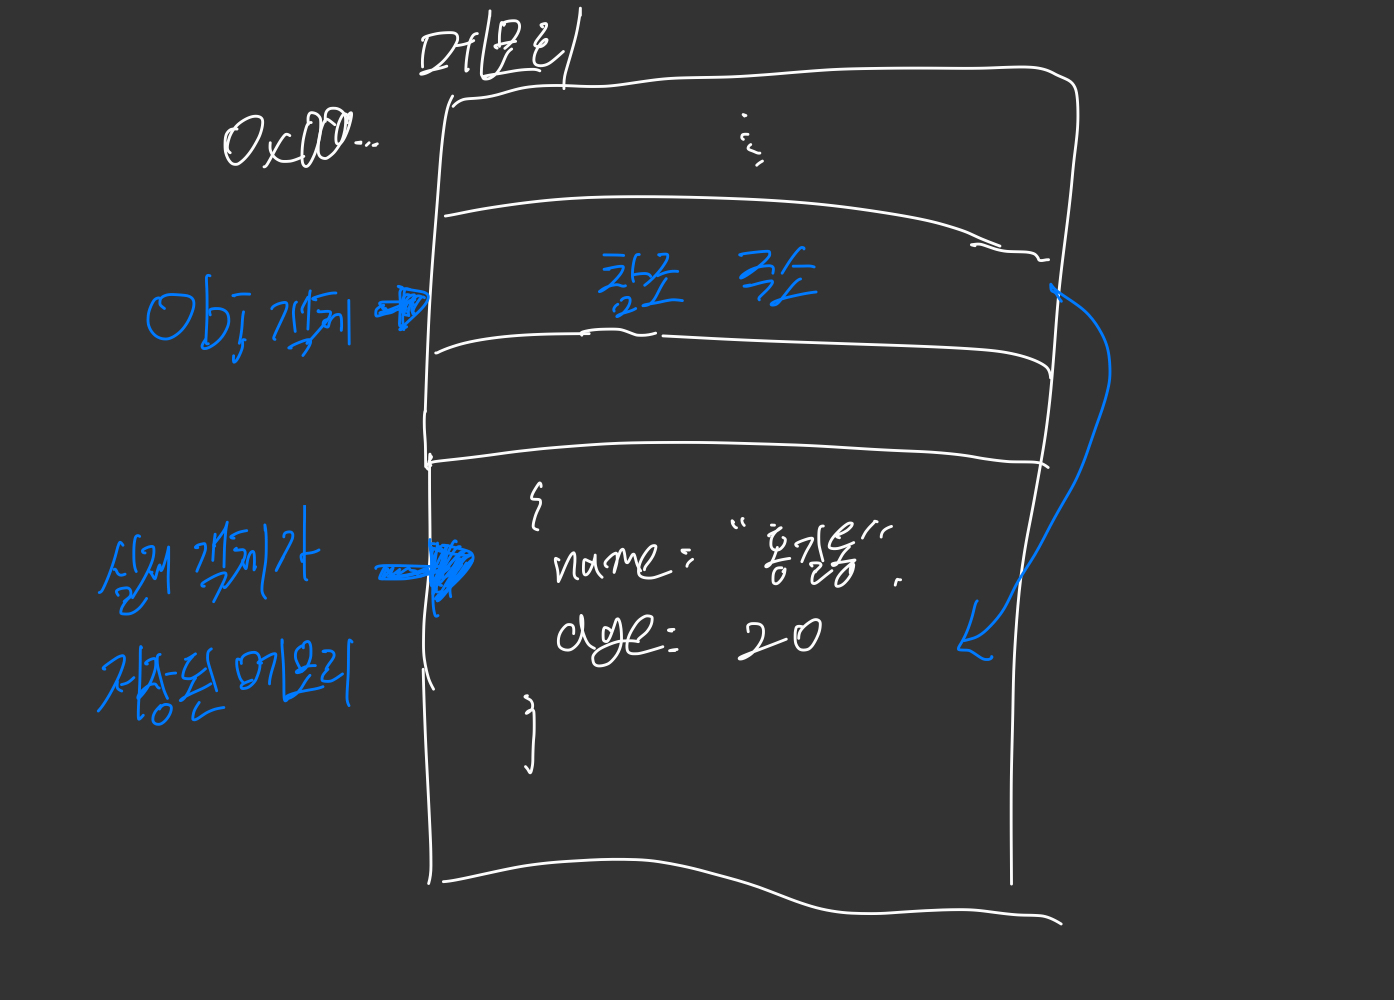 메모리
0x00...
Obj 객체
참조 주소
실제 객체가
저장된 메모리
{
name: "홍길동",
age: 20
}